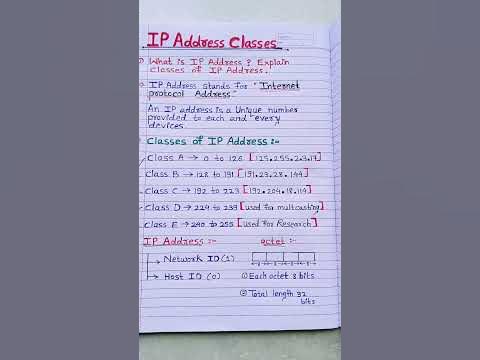 IP Address Classes
What is IP Address ? Explain
classes of IP Address.
IP Address stands for "Internet
protocol Address."
An IP address is a Unique number
provided to each and every
devices.
Classes of IP Address :-
Class A → 0 to 126 [125.255.2.3.17]
Class B → 128 to 191 [191.23.28.144]
Class C → 192 to 223 [192.204.18.114]
Class D → 224 to 239 [used for multicasting]
Class E → 240 to 255 [used for Research]
IP Address :-
Network ID (1)
Host ID (0)
octet :-
① Each octet 8 bits
② Total length 32
bits